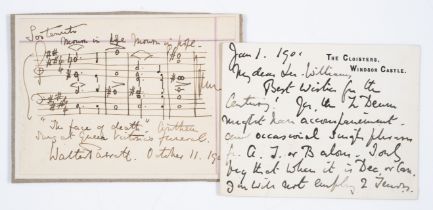 Sostenuto
"The face of death" Anthem
Sung at Queen Victoria's funeral.
Walter Parratt. October 11. 190
Jan 1. 190
THE CLOISTERS,
WINDSOR CASTLE.
My dear Sir William,
Best wishes for the
Century! Yes, the Te Deum
might have accompaniment
and occasional single phrases
for A. T. or B alone. I only
beg that when it is Dec. or Can.
you will not employ 2 Tenors.